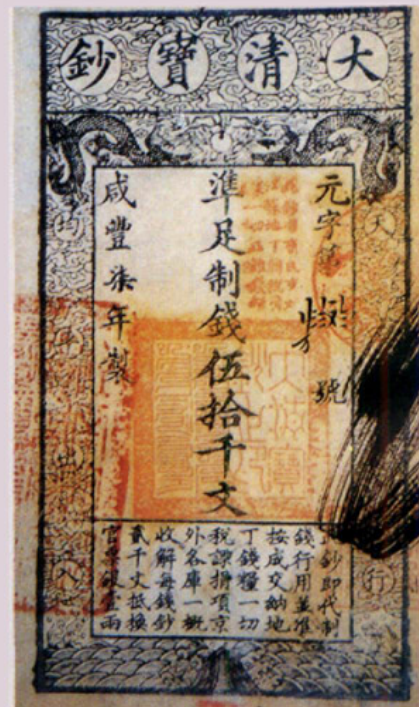 大清寶鈔
天 行
元字第 號
準足制錢伍拾千文
咸豐柒年製
均平出入
鈔即代制
錢行用並准
按成交納地
丁錢糧一切
稅課捐項京
外各庫一概
收解每錢鈔
貳千文抵換
官票銀壹兩